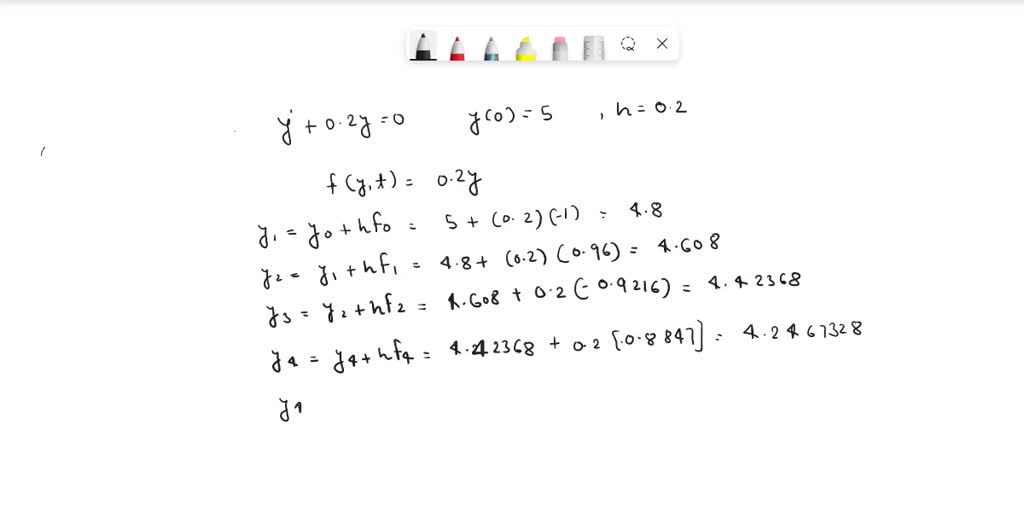 y' + 0.2y = 0 y(0) = 5 , h = 0.2
f(y,t) = 0.2y
y₁ = y₀ + hf₀ = 5 + (0.2)(-1) = 4.8
y₂ = y₁ + hf₁ = 4.8 + (0.2)(0.96) = 4.608
y₃ = y₂ + hf₂ = 4.608 + 0.2(-0.9216) = 4.42368
y₄ = y₄ + hf₄ = 4.42368 + 0.2[-0.8847] = 4.2467328
y